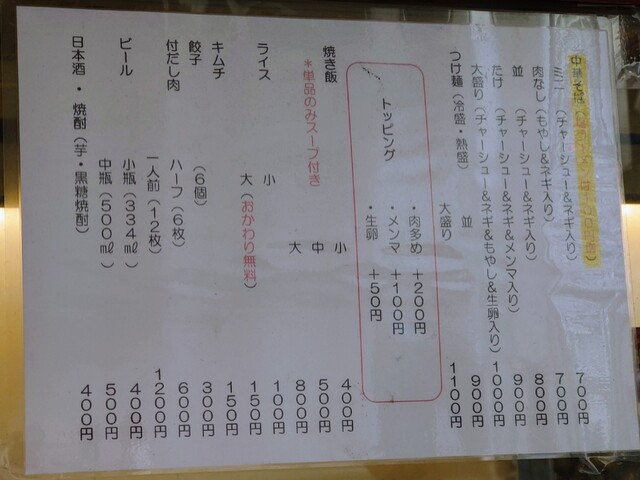 中華そば
ミニ（チャーシュー&ネギ入り） 700円
肉なし（もやし&ネギ入り） 700円
並（チャーシュー&ネギ入り） 800円
たけ（チャーシュー&ネギ&メンマ入り） 900円
大盛り（チャーシュー&ネギ&もやし&生卵入り） 1000円
つけ麺（冷盛・熱盛） 並 900円
大盛り 1100円
トッピング
・肉多め ＋200円
・メンマ ＋100円
・生卵 ＋50円
焼き飯 小 400円
＊単品のみスープ付き
中 500円
大 800円
ライス 小 100円
大（おかわり無料） 150円
キムチ 150円
餃子（6個） 300円
付だし肉 ハーフ（6枚） 600円
一人前（12枚） 1200円
ビール 小瓶（334㎖） 400円
中瓶（500㎖） 500円
日本酒・焼酎（芋・黒糖焼酎） 400円